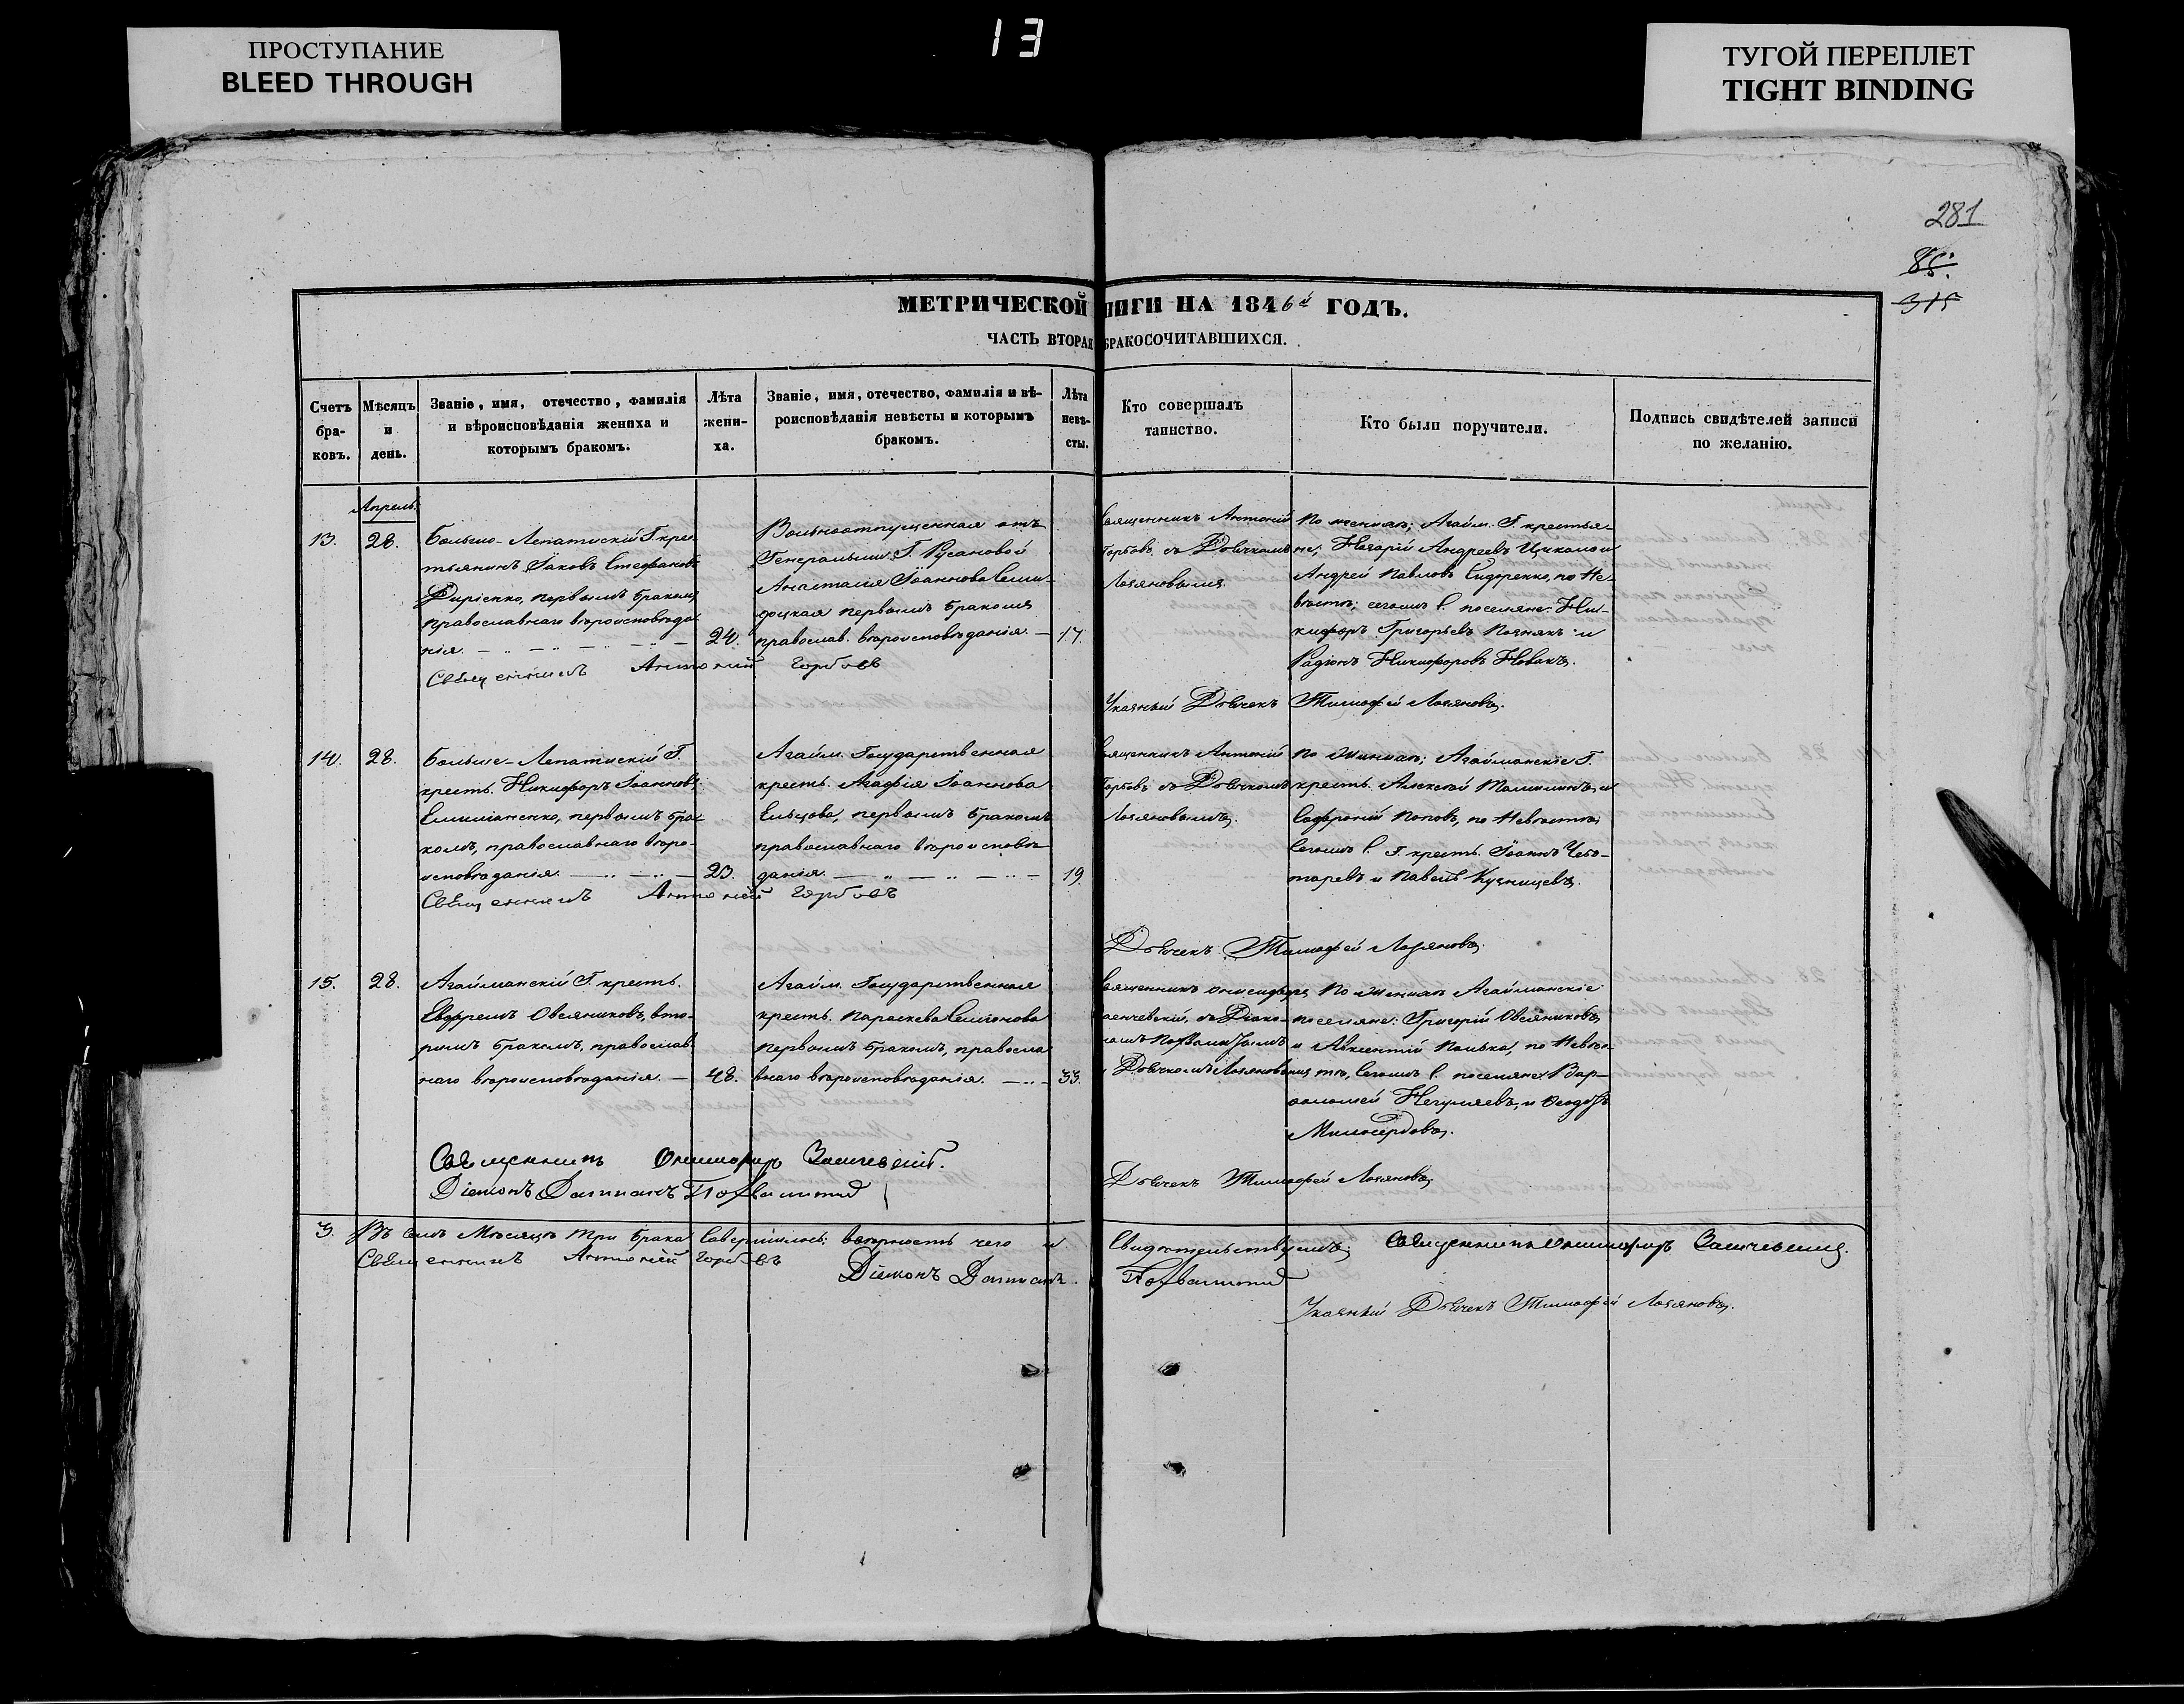 ПРОСТУПАНИЕ
BLEED THROUGH
13
ТУГОЙ ПЕРЕПЛЕТ
TIGHT BINDING
281
85.
315
МЕТРИЧЕСКОЙ НИГИ НА 1846й ГОДЪ.
ЧАСТЬ ВТОРАЯ БРАКОСОЧИТАВШИХСЯ.
Счетъ бра-ковъ.
Мѣсяцъ и день.
Званіе, имя, отечество, фамилія
и вѣроисповѣданія жениха и
которымъ бракомъ.
Лѣта жени-ха.
Званіе, имя, отечество, фамилія и вѣ-
роисповѣданія невѣсты и которымъ
бракомъ.
Лѣта невѣ-сты.
Кто совершалъ
таинство.
Кто были поручители.
Подпись свидѣтелей записи
по желанію.
Апрель.
13. 28.
Больше-Лепатиский Г. кре-
тьянинъ Іаковъ Стефановъ
первымъ бракомъ
православнаго вѣроисповѣда-
нія. 24.
Вольноотпущенная отъ
Генеральши Г. Русановой
Анастасія Іоаннова
первымъ бракомъ
православ. вѣроисповѣданія. 17.
Священникъ Антоній
Горбовъ съ Дьячкомъ
Лозяновымъ
По женихѣ; Агайм. Г. крестья-
не; Назарій Андреевъ и
Андрей Павловъ Сидоренко, по Не-
вѣстѣ; сегожъ С. поселяне: Ни-
кифоръ Григорьевъ Познякъ и
Радіонъ Никифоровъ Новакъ.
Священникъ Антоній Горбовъ
Указный Дьячекъ Тимофей Лозяновъ.
14. 28.
Больше-Лепатиский Г.
кресть. Никифоръ Іоанновъ
Емельяненко, первымъ бра-
комъ, православнаго вѣро-
исповѣданія. 23.
Агайм. Государственная
кресть. Агафія Іоаннова
Ельцова, первымъ бракомъ
православнаго вѣроисповѣ-
данія. 19.
Священникъ Антоній
Горбовъ съ Дьячкомъ
Лозяновымъ.
По Женихѣ; Агайманскіе Г.
кресть. Алексѣй и
Софроній Поповъ, по Невѣстѣ;
Сегожъ С. Г. кресть. Іоаннъ Чебо-
таревъ и Павелъ Кузнецовъ.
Священникъ Антоній Горбовъ
Дьячекъ Тимофей Лозяновъ.
15. 28.
Агайманскій Г. кресть.
Евфремъ Овсяниковъ, вто-
рымъ бракомъ, православ-
наго вѣроисповѣданія. 48.
Агайм. Государственная
кресть. Параскева Семіонова
первымъ бракомъ, правосла-
внаго вѣроисповѣданія. 33.
Священникъ Онисифоръ
съ Діако-
номъ
Дьячкомъ Лозяновымъ
По Женихѣ Агайманскіе
поселяне: Григорій Овсяниковъ
и Авксентій по Невѣс-
тѣ, Сегожъ С. поселяне: Вар-
ѳоломей и Ѳеодоръ
Милосердовъ.
Священникъ Онисифоръ
Діаконъ Даміанъ
Дьячекъ Тимофей Лозяновъ.
3. Въ семъ Мѣсяцѣ три брака совершилось; вѣрность чего и Свидѣтельствуемъ; Священникъ Онисифоръ
Священникъ Антоній Горбовъ Діаконъ Даміанъ
Указный Дьячекъ Тимофей Лозяновъ.